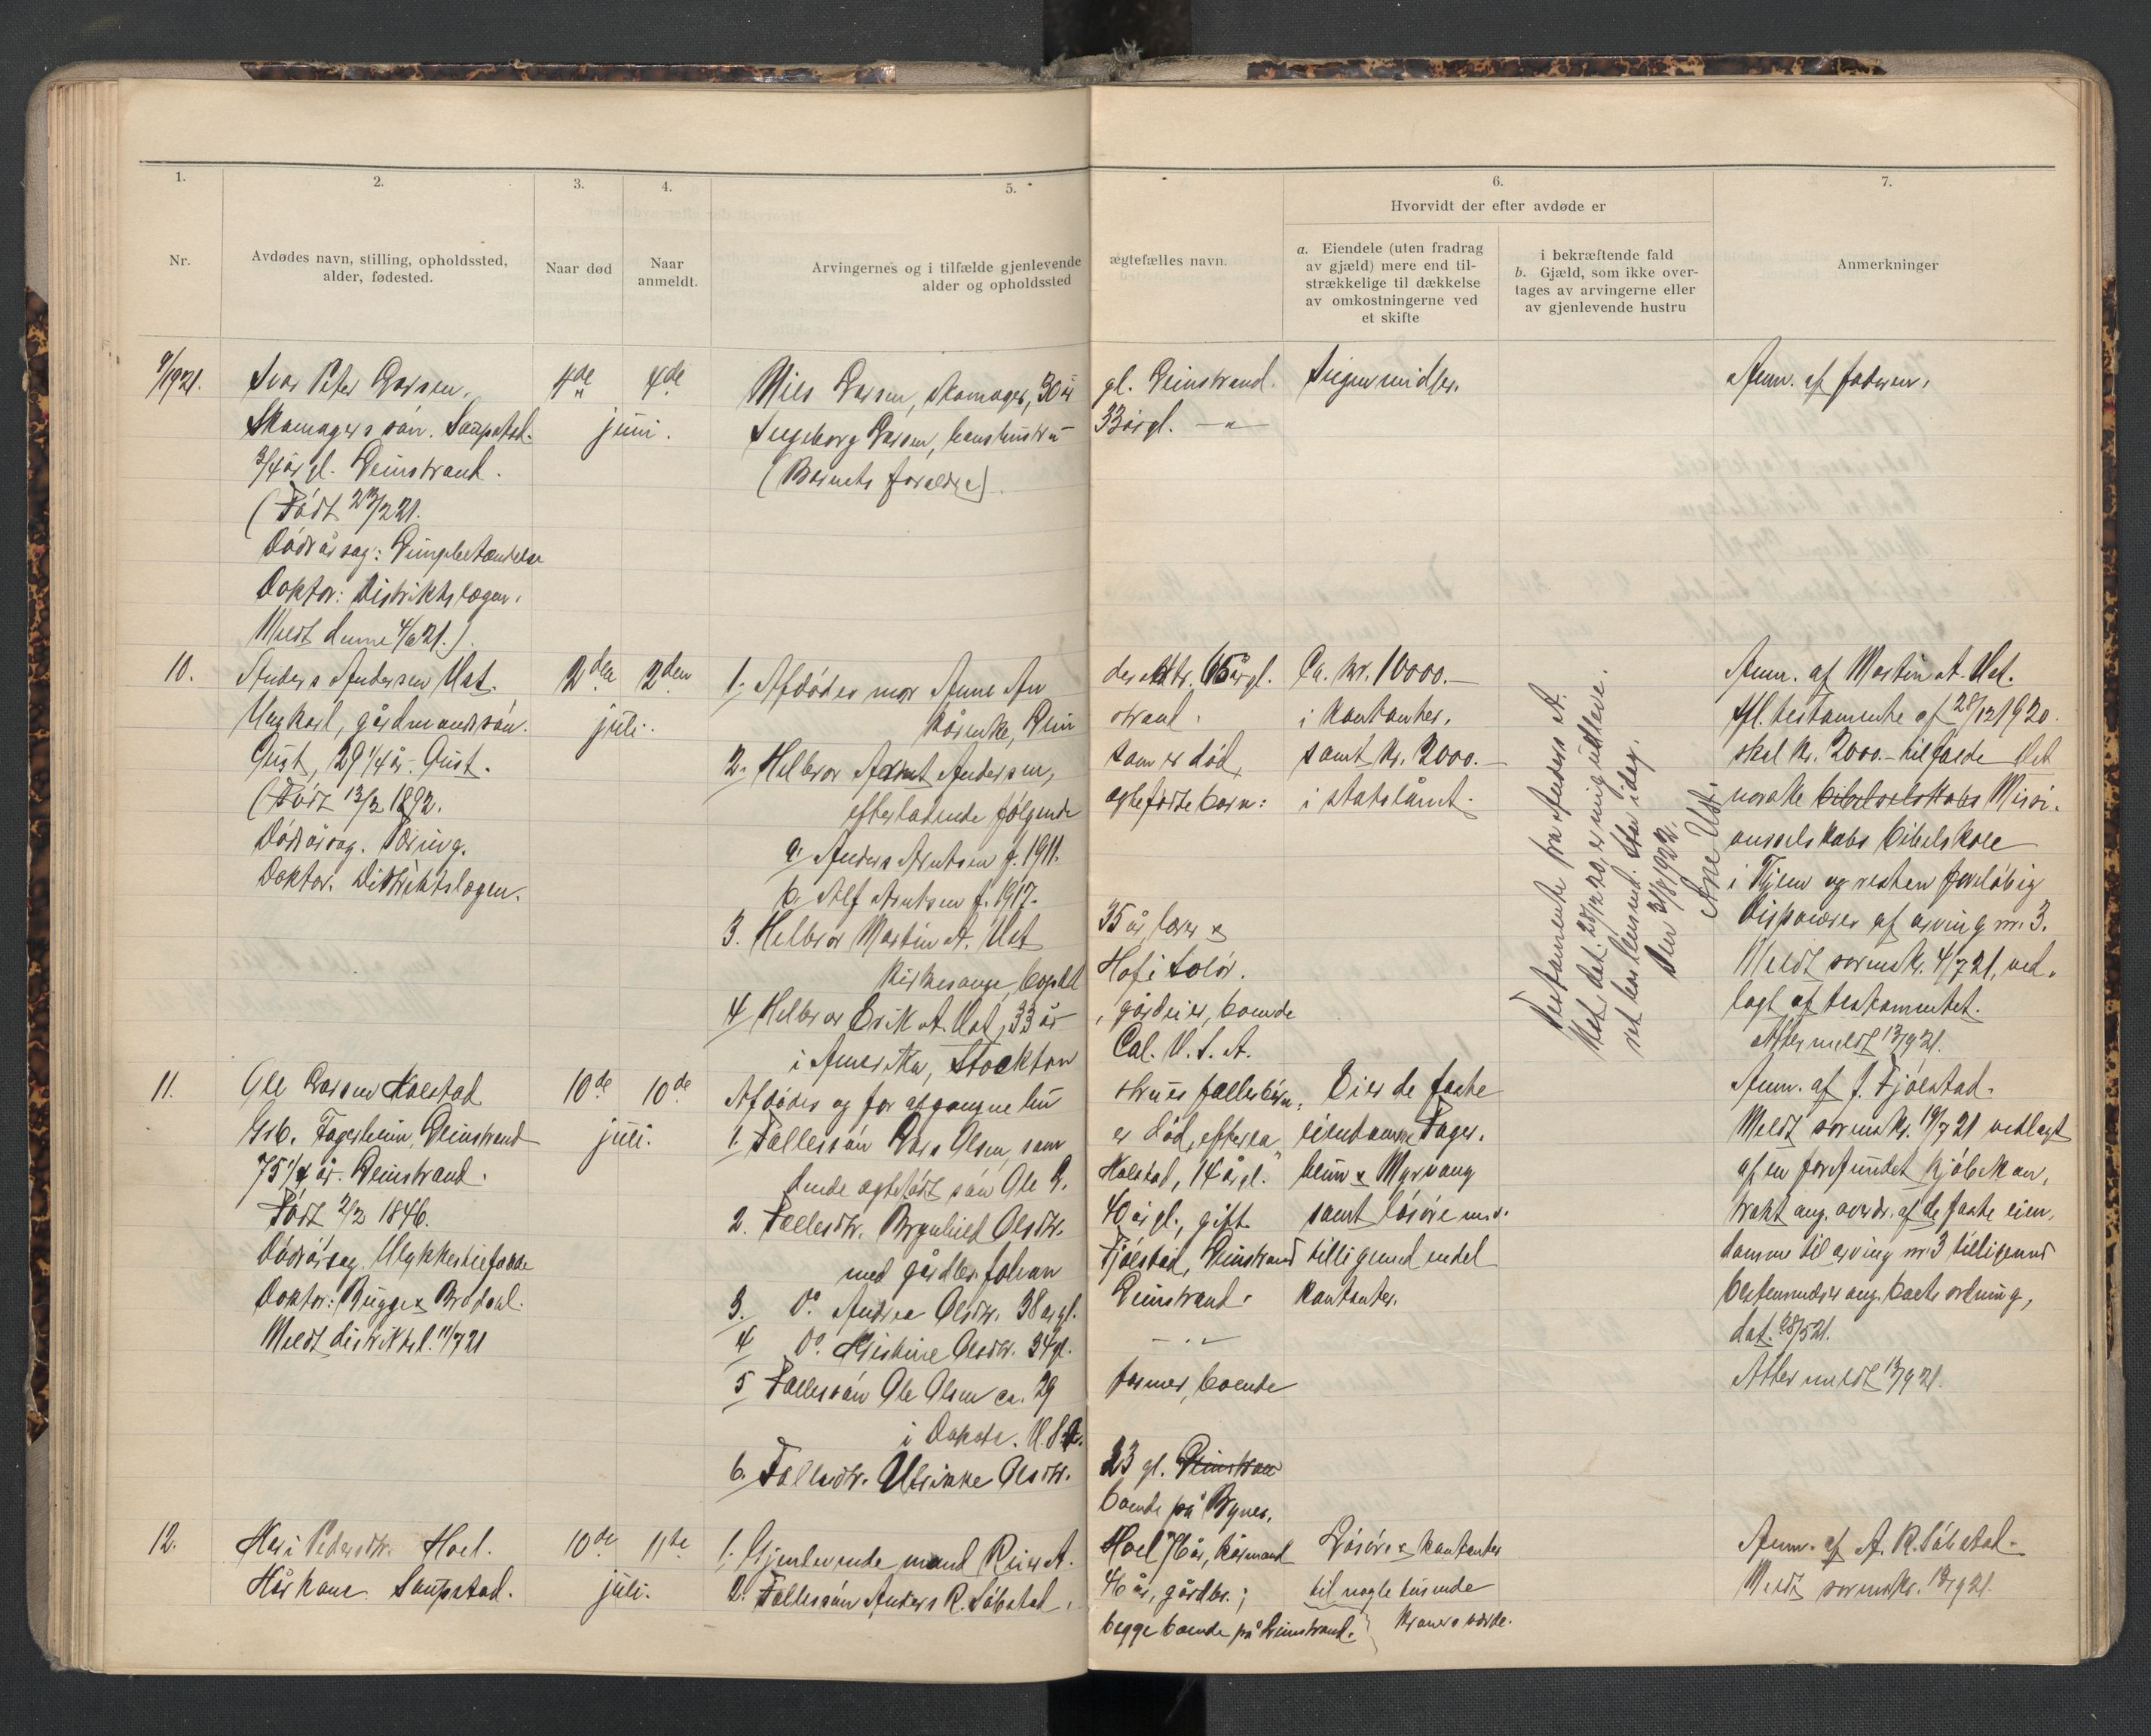 1.
2.
3.
4.
5.
6.
7.
Nr.
Avdødes navn, stilling, opholdssted,
alder, fødested.
Naar død
Naar
anmeldt.
Arvingernes og i tilfælde gjenlevende ægtefælles navn.
alder og opholdssted
Hvorvidt der efter avdøde er
a. Eiendele (uten fradrag
av gjæld) mere end til-
strækkelige til dækkelse
av omkostningerne ved
et skifte
i bekræftende fald
b. Gjæld, som ikke over-
tages av arvingerne eller
av gjenlevende hustru
Anmerkninger
9/1921.
Ivar Peter Larsen.
Skomagers søn. Saupstad.
3/4 år gl. Leinstrand.
(Født 2/221.
Dödsårsag: Lungebetændelse
Doktor: Distriktslægen.
Meldt denne 4/621.)
4de
4de
juni.
Nils Larsen, skomager, 30 år gl. Leinstrand.
Ingeborg Larsen, hans hustru 33 år gl. —"—
(Barnets forældre).
Ingen midler.
Anm. af faderen.
10.
Anders Andersen Ust.
Ungkarl, gårdmandssön.
Qust, 29 1/4 år. Qust.
(Födt 13/3 1892.
Dödsårsag. Tæring.
Doktor. Distriktslægen.
2den
2den
juli.
1. Afdödes mor Anne Andersdtr. 65 år gl.
kårenke, Leinstrand.
2. Helbror Arnt Andersen, som er död,
efterladende følgende ægtefødte børn:
a. Anders Arntsen f. 1911.
b. Alf Arntsen f. 1917.
3. Helbror Martin A. Ust 35 år lærer &
kirkesanger, bopæl Hof i Solör.
4 Helbror Erik A. Ust, 33 år, gårdeier, boende
i Amerika, Stockton Cal. U.S.A.
Ca. kr. 10000.—
i kontanter,
samt kr. 2000.—
i statslånt.
Testamente fra Anders A.
Ust dat. 28/12 20 er mig udleve-
ret hos lensmd. Sta idag.
Den 3/8 1922.
Ane Ust.
Anm. af Martin A. Ust.
Ifl. testamente af 28/12 1920.
skal kr. 2000.— tilfalde det
norske bibelselskabs Missi-
onsselskabs bibelskole
i Tiller og resten foreløbig
disponeres af arving nr. 3.
Meldt sorenskr. 4/721, ved-
lagt af testamentet.
Atter meldt 13/921.
11.
Ole Larsen Kolstad
Grb. Fagerheim, Leinstrand
75 1/4 år. Leinstrand.
Födt 2/3 1846.
Dödsårsag. Ulykkestilfælde
Doktor: Bugge & Brodahl.
Meldt distriktsl. 11/721
10de
10de
juli.
Afdödes og for afgangne hustrues fællesbørn:
1. Fællessön Lars Olsen, som er död, efterla-
dende ægtefödt sön Ole L. Kolstad, 14 år gl.
2. Fællesdtr. Brynhild Olsdtr. 40 år gl., gift
med gårdbr. Johan Fjölstad, Leinstrand
3. Do. Andrea Olsdtr. 38 år gl. Leinstrand.
4 Do. Kristine Olsdtr. 34 gl. —"—
5 Fællessön Ole Olsen ca. 29 farmer, boende
i Dakota. U.S.A.
6. Fællesdtr. Ulrikke Olsdtr. 23 gl. Leinstran
boende på Bynes.
Eier de faste
eiendomme Fager-
heim & Myrvang
samt lösöre m.v.
tilligemed endel
kontanter.
Anm. af J. Fjölstad.
Meldt sorenskr. 19/721 vedlagt
af en forefundet kjöbekon-
trakt ang. overdr. af de faste eien-
domme til arving nr. 3 tilligemed
bestemmelser ang. boets ordning,
dat. 28/521.
Atter meldt 13/921.
12.
Kari Pedersdtr. Hoel.
Kårkone. Saupstad.
10de
11te
juli.
1. Gjenlevende mand Reier A. Hoel 76 år, kårmand
2. Fællessön Anders R. Söbstad, 46 år, gårdbr.;
begge boende på Leinstrand.
Lösöre & kontanter
til nogle tusinde
kroners værdi.
Anm. af A. R. Söbstad.
Meldt sorenskr. 13/921.